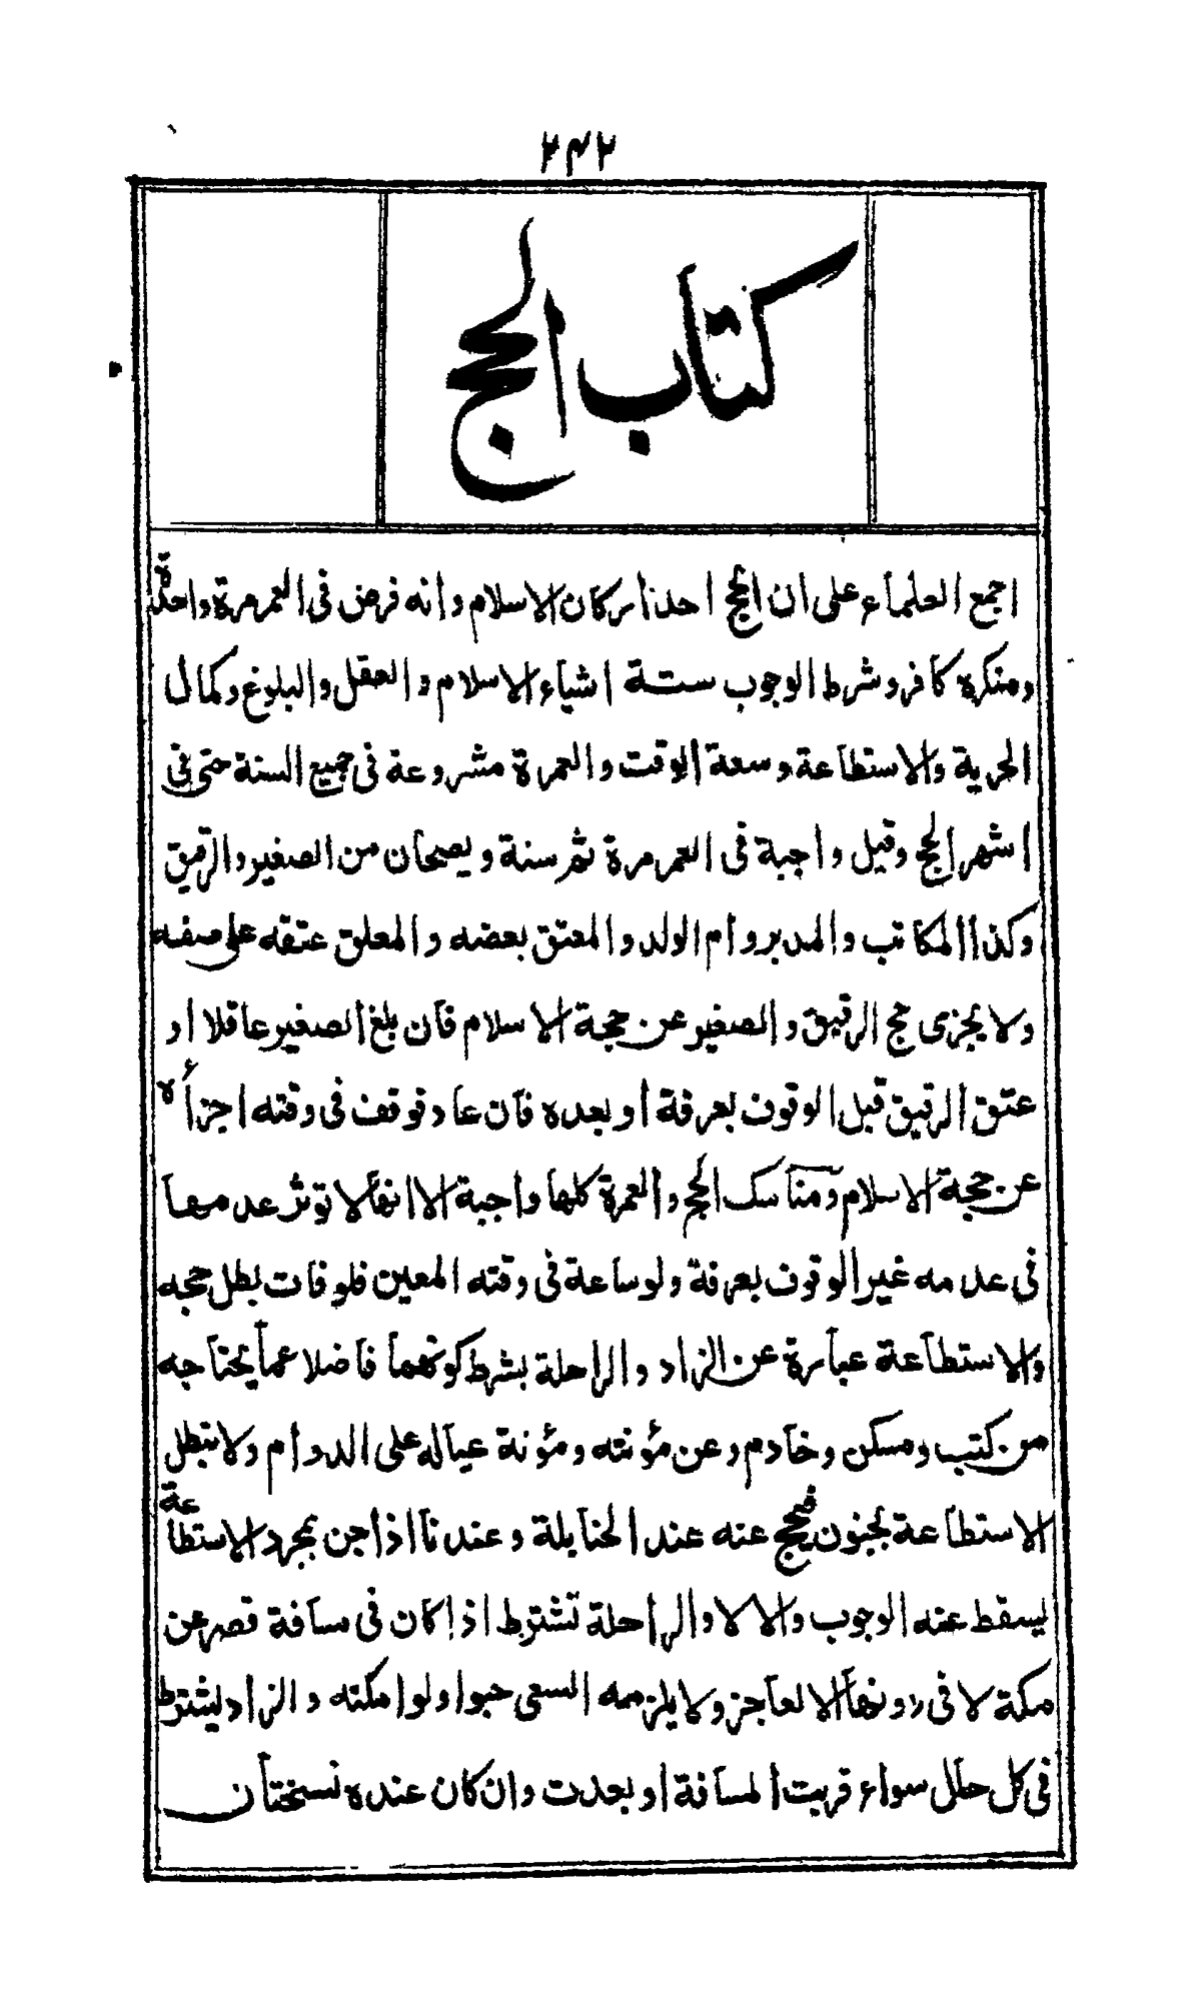 ٢٤٢
كتاب الحج
اجمع العلماء على ان الحج احد اركان الاسلام وانه فرض فى العمر مرة واحدة
ومنكره كافر وشرط الوجوب ستة اشياء الاسلام والعقل والبلوغ وكمال
الحرية والاستطاعة وسعة الوقت والعمرة مشروعة فى جميع السنة حتى فى
اشهر الحج وقيل واجبة فى العمر مرة ثم سنة ويصحان من الصغير والرقيق
وكذا المكاتب والمدبر وام الولد والمعتق بعضه والمعلق عتقه على صفه
ولا يجزى حج الرقيق والصغير عن حجة الاسلام فان بلغ الصغير عاقلا او
عتق الرقيق قبل الوقوف بعرفة او بعده فان عاد فوقف فى وقته اجزأه
عن حجة الاسلام ومناسك الحج والعمرة كلها واجبة الا انها لا توثر عدمها
فى عدمه غير الوقوف بعرفة ولو ساعة فى وقته المعين فلو فات بطل حجه
والاستطاعة عبارة عن الزاد والراحلة بشرط كونهما فاضلا عما يحتاجه
من كتب ومسكن وخادم وعن مؤنته ومؤنة عياله على الدوام ولا تبطل
الاستطاعة بجنون فيحج عنه عند الحنابلة وعندنا اذا جن بمجرد الاستطاعة
يسقط عنه الوجوب والا لا والراحلة تشترط اذا كان فى مسافة قصر عن
مكة لا فى دونها الا لعاجز ولا يلزمه السعى حبوا ولو امكنه والزاد يشترط
فى كل حال سواء قربت المسافة او بعدت وان كان عنده نسختان